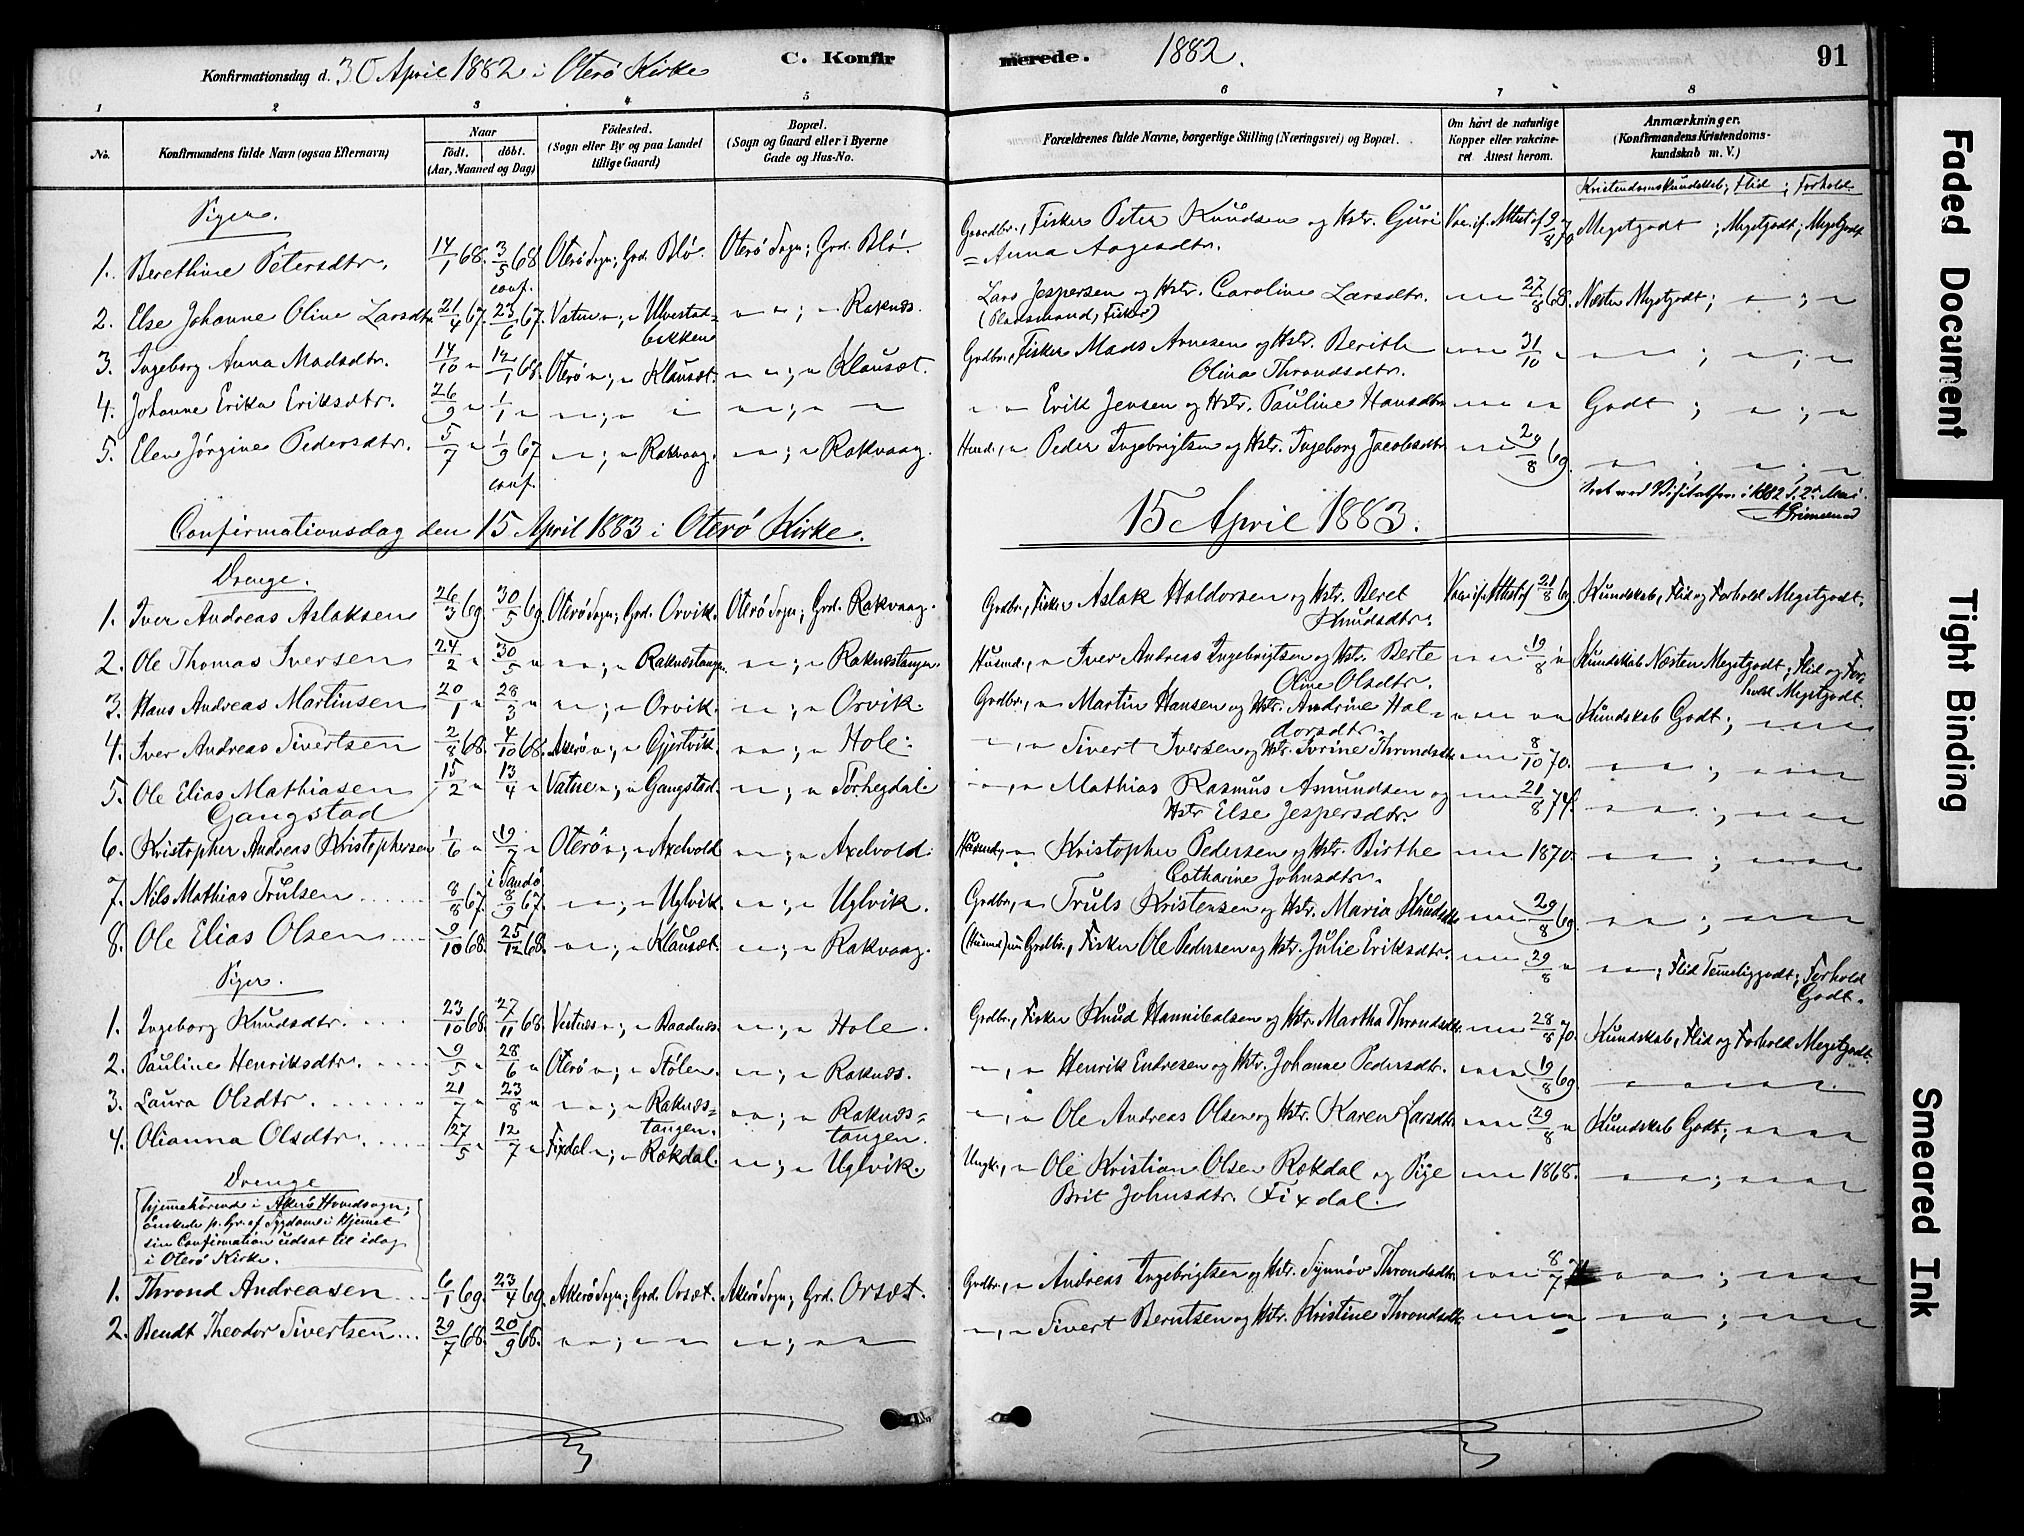 Konfirmationsdag d. 30 April 1882 i Oterø Kirke
C. Konfirmerede. 1882. 91
1 2 3 4 5 6 7 8
No. Konfirmandens fulde Navn (ogsaa Efternavn)
Naar födt. döbt. (Aar, Maaned og Dag)
Födested. (Sogn eller By og paa Landet tillige Gaard)
Bopæl. (Sogn og Gaard eller i Byerne Gade og Hus-No.
Forældrenes fulde Navne, borgerlige Stilling (Næringsvei) og Bopæl.
Om havt de naturlige Kopper eller vakcineret Attest herom.
Anmærkninger. (Konfirmandens Kristendomskundskab m. V.)
Kristendomskundskab; Flid; Forhold.
Piger.
1. Berethine Petersdtr. 14/1 68. 3/5 68 conf. Oterø Sogn; Grd. Blø. Oterø Sogn; Grd. Blø. Gaardbr., Fisker Peter Knudsen og Hstr. Guri = Anna Aagesdtr. Vac. if. Attest af 9/8 70 Megetgodt; Megetgodt; Megetgodt
2. Else Johanne Oline Larsdtr. 21/4 67. 23/6 67. Vatne " ; " Ulvestadbakken " " ; " Raknæs. Lars Jespersen og Hstr. Caroline Larsdtr. (Pladsmand, Fisker) " " " 27/8 68. Næsten Megetgodt; " ; "
3. Ingeborg Anna Madsdtr. 14/10 " 12/1 68. Oterø " ; " Klauset. " " ; " Klausæt. Grdbr., Fisker Mads Arnesen og Hstr. Berith Olina Throndsdtr. " " " 31/10 " " " ; " ; "
4. Johanne Erika Eriksdtr. 26/9 " 1/1 " " " ; " " " " ; " " " " Erik Jensen og Hstr. Pauline Hansdtr " " " " " Godt ; " ; "
5. Elen Jørgine Pedersdtr. 5/7 " 1/9 67 conf. " " ; " Rakvaag. " " ; " Rakvaag. Husmd., " Peder Ingebrigtsen og Hstr. Ingeborg Jacobsdtr " " " 29/8 69. " " ; " ; "
i 1882 d. 2den Mai.
Confirmationsdag den 15 April 1883 i Oterø Kirke. 15 April 1883.
Drenge.
1. Iver Andreas Aslaksen 26/3 69. 30/5 69. Oterø Sogn; Grd. Orvik. Oterø Sogn; Grd. Rakvaag. Grdbr., Fisker Aslak Haldorsen og Hstr. Beret Knudsdtr. Vac. if. Attest af 21/8 69. Kundskab, Flid og Forhold Megetgodt.
2. Ole Thomas Iversen 24/2 " 30/5 " " " ; " Raknæstangen " " ; " Raknæstangen. Husmd., " Iver Andreas Ingebrigtsen og Hstr. Berte Oline Olsdtr. " " " 19/8 " Kundskab Næsten Megetgodt; Flid og Forhold Megetgodt.
3. Hans Andreas Martinsen 20/1 " 28/3 " " " ; " Orvik. " " ; " Orvik. Grdbr., " Martin Hansen og Hstr. Andrine Haldorsdtr. " " " " " Kundskab Godt; " " "
4. Iver Andreas Sivertsen 2/8 68. 4/10 68. Akerø " ; " Gjertvik. " " ; " Hole. " , " Sivert Iversen og Hstr. Ivrine Throndsdtr " " " 8/10 70. " " ; " " "
5. Ole Elias Mathiasen Gangstad 15/2 " 13/4 " Vatne " ; " Gangstad. " " ; " Tørhegdal. " , " Mathias Rasmus Asmundsen og Hstr Else Jespersdtr. " " " 21/8 74. " " ; " " "
6. Kristopher Andreas Kristophersen 1/6 " 19/7 " Oterø " ; " Axelvold " " ; " Axelvold. Husmd., " Kristopher Pedersen og Hstr. Birthe Catharine Johnsdtr. " " " 1870. " " ; " " "
7. Nils Mathias Trulsen 8/8 67. i Sandø 8/9 67. " " ; " Uglvik. " " ; " Uglvik. Grdbr., " Truls Kristensen og Hstr. Maria Knudsdtr " " " 29/8 69. " " ; " " "
8. Ole Elias Olsen 9/10 68. 25/12 68. " " ; " Klausæt. " " ; " Rakvaag. (Husmd) nu Grdbr., Fisker Ole Pedersen og Hstr. Julie Eriksdtr. " " " 29/8 " " " ; Flid Temmeliggodt; Forhold Godt.
Piger.
1. Ingeborg Knudsdtr. 23/10 68. 27/11 68. Vestnes " ; " Baadnæs. " " ; " Hole. Grdbr., Fisker Knud Hannibalsen og Hstr Martha Throndsdtr. " " " 28/8 70. Kundskab, Flid og Forhold Megetgodt.
2. Pauline Henriksdtr. 9/5 " 28/6 " Oterø " ; " Stølen. " " ; " Raknæs. " , " Henrik Endresen og Hstr. Johanne Pedersdtr. " " " 19/8 69. " " " "
3. Laura Olsdtr. 21/7 " 23/8 " " " ; " Raknæstangen. " " ; " Raknæstangen. " , " Ole Andreas Olsen og Hstr. Karen Larsdtr " " " 29/8 " Kundskab Godt; " " "
4. Olianna Olsdtr. 27/5 " 12/7 " Fixdal " ; " Rækdal. " " ; " Uglvik. Ungk., " Ole Kristian Olsen Rækdal og Pige Brit Johnsdtr. Fixdal. " " " 1868. " " ; " " "
Drenge
hjemmehörende i Akerø Hovedsogn;
önskede p. Gr. af Sygdome i Hjemmet
sin Confirmation udsat til idag
i Oterø Kirke.
1. Thrond Andreasen 6/1 69. 23/4 69. Akerø Sogn; Grd. Orsæt. Akerø Sogn; Grd. Orsæt. Grdbr., " Andreas Ingebrigtsen og Hstr. Synnøv Throndsdtr. " " " 8/7 " " ; " " "
2. Bendt Theodor Sivertsen 29/7 68. 20/9 68. " " ; " " " " ; " " " , " Sivert Berntsen og Hstr. Kristine Throndsdtr " " " " " " ; " " "
Faded Document
Tight Binding
Smeared Ink